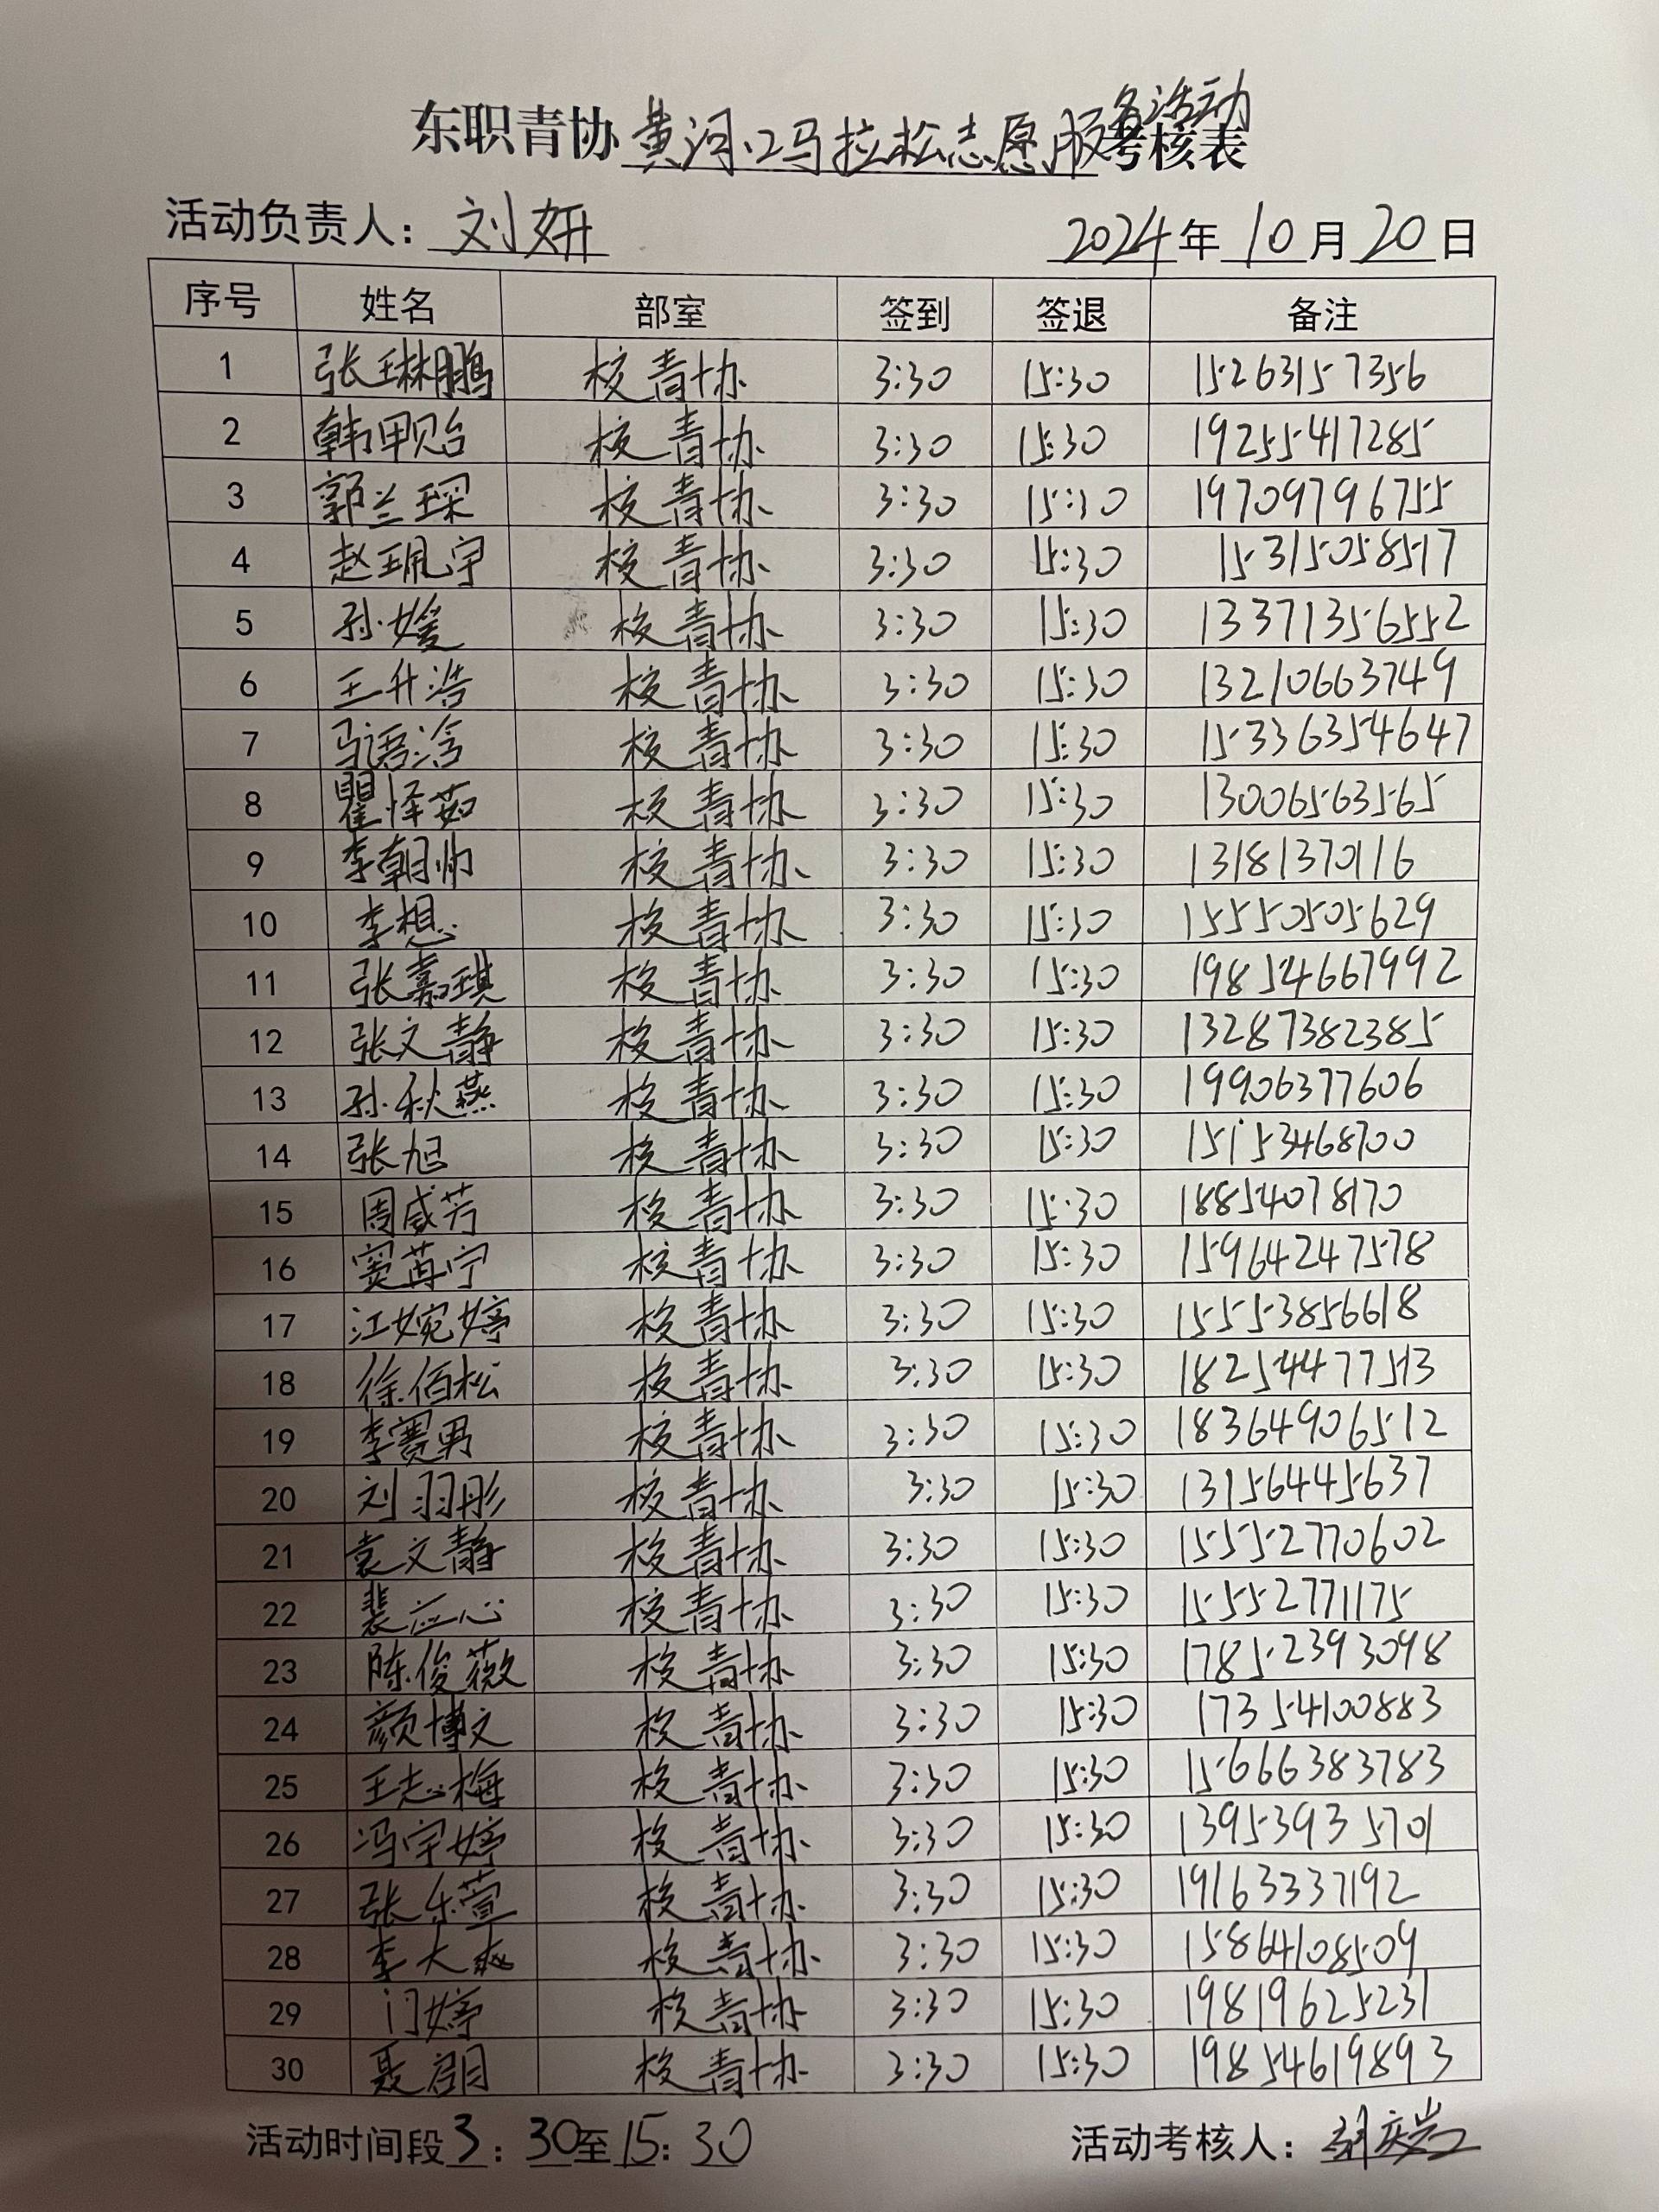 东职青协黄河口马拉松志愿服务活动考核表
活动负责人：刘妍 2024年10月20日
序号 姓名 部室 签到 签退 备注
1 张琳鹏 校青协 3:30 15:30 15263157356
2 韩甲贻 校青协 3:30 15:30 19255417285
3 郭兰琛 校青协 3:30 15:30 19709796755
4 赵珮宇 校青协 3:30 15:30 15315058517
5 孙媛 校青协 3:30 15:30 13371356552
6 王升浩 校青协 3:30 15:30 13210663749
7 马语浛 校青协 3:30 15:30 15336354647
8 瞿怿茹 校青协 3:30 15:30 13006563565
9 李朝帅 校青协 3:30 15:30 13181370116
10 李想 校青协 3:30 15:30 15550505629
11 张嘉琪 校青协 3:30 15:30 19854667992
12 张文静 校青协 3:30 15:30 13287382385
13 孙秋燕 校青协 3:30 15:30 19906377606
14 张旭 校青协 3:30 15:30 15153468700
15 周咸芳 校青协 3:30 15:30 18854078170
16 窦苒宁 校青协 3:30 15:30 15964247578
17 江婉婷 校青协 3:30 15:30 15553856618
18 徐佰松 校青协 3:30 15:30 18254477513
19 李赛男 校青协 3:30 15:30 18364906512
20 刘羽彤 校青协 3:30 15:30 13156445637
21 袁文静 校青协 3:30 15:30 15552770602
22 裴应心 校青协 3:30 15:30 15552771175
23 陈俊薇 校青协 3:30 15:30 17852393098
24 颜博文 校青协 3:30 15:30 17354100883
25 王志梅 校青协 3:30 15:30 15666383783
26 冯宇婷 校青协 3:30 15:30 13953935701
27 张乐萱 校青协 3:30 15:30 19163337192
28 李大爽 校青协 3:30 15:30 15864108509
29 门婷 校青协 3:30 15:30 19819625231
30 聂启明 校青协 3:30 15:30 19854619893
活动时间段3：30至15：30 活动考核人：